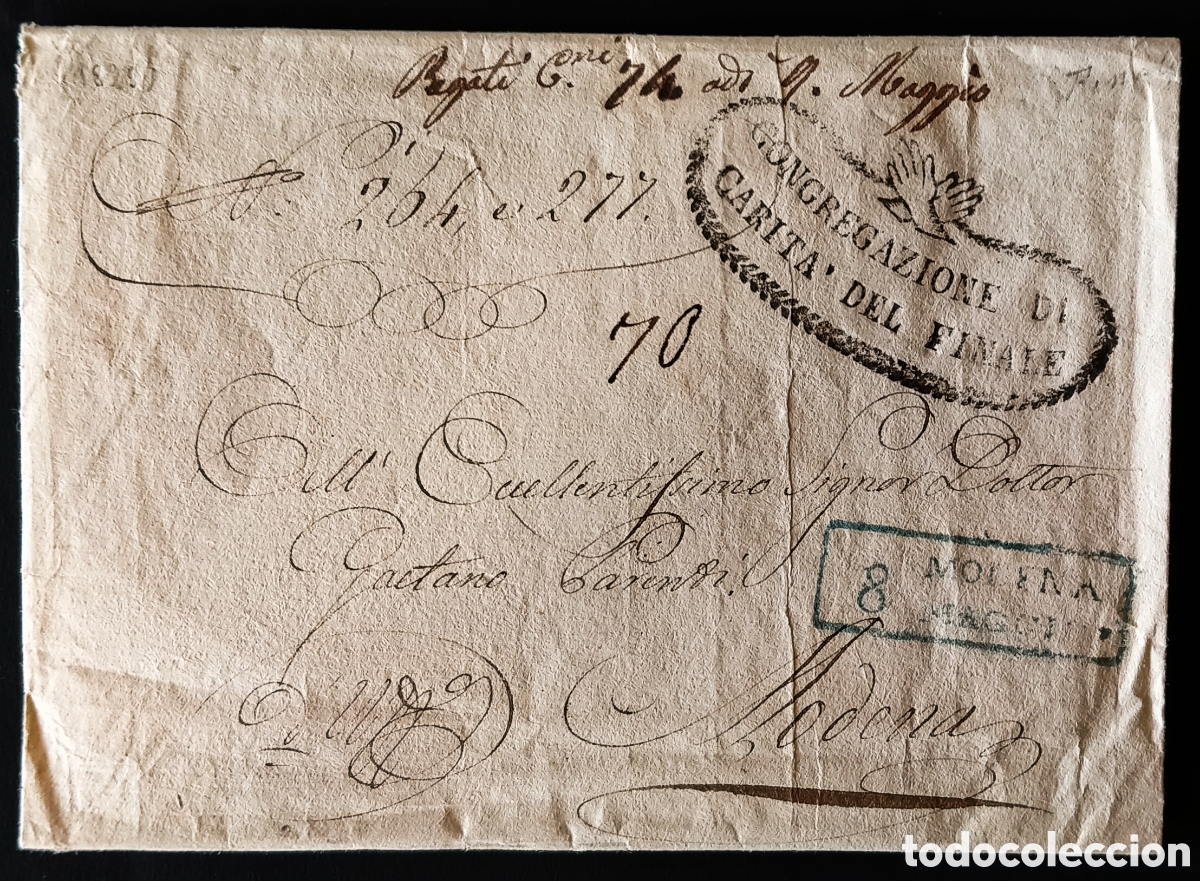 (1828)
Pagati C.ni 74 adi 9. Maggio
CONGREGAZIONE DI
CARITA' DEL FINALE
N.o 254, e 277.
70
All' Eccellentissimo Signor Dottor
Gaetano Parenti
8 MODENA
MAGGIO
D'Uff.o
Modena
todocoleccion